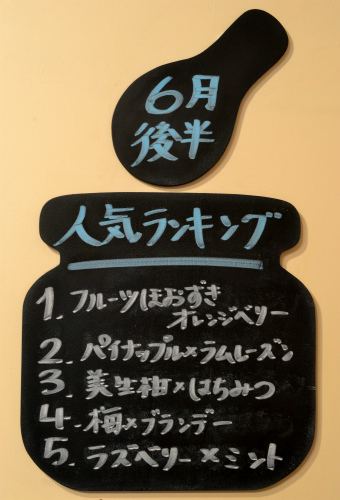 6月
後半
人気ランキング
1. フルーツほおずき
オレンジベリー
2. パイナップル×ラムレーズン
3. 美生柑×はちみつ
4. 梅×ブランデー
5. ラズベリー×ミント